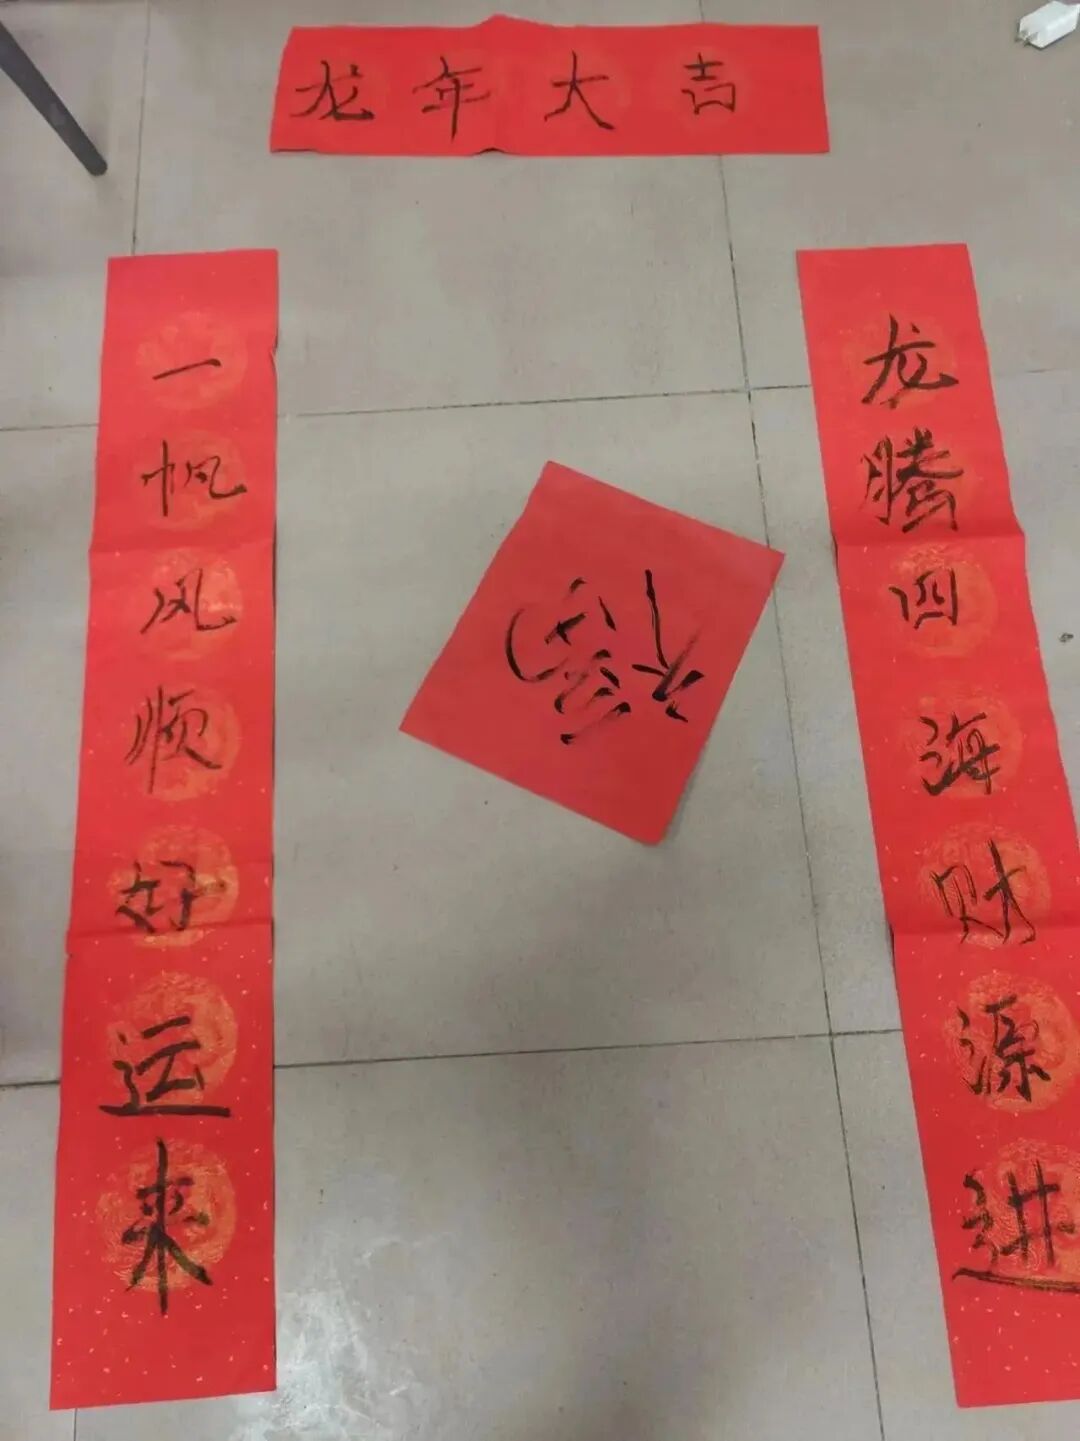 龙年大吉
一帆风顺好运来
福
龙腾四海财源进